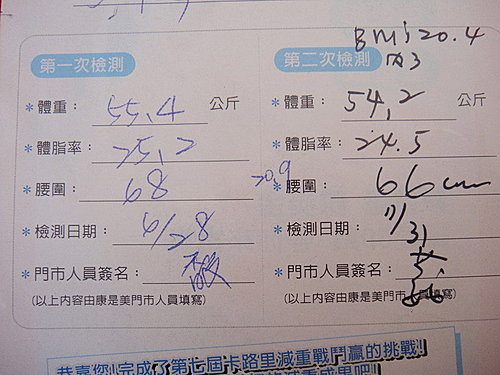 BMI 20.4
第一次檢測
第二次檢測 內3
*體重： 55.4 公斤
*體重： 54.2 公斤
*體脂率： 25.2
*體脂率： 24.5
*腰圍： 68
*腰圍： 66cm
*檢測日期： 6/28
*檢測日期： 7/31
*門市人員簽名：
*門市人員簽名：
(以上內容由康是美門市人員填寫)
(以上內容由康是美門市人員填寫)
恭喜您!完成了第七屆卡路里減重戰鬥贏的挑戰!